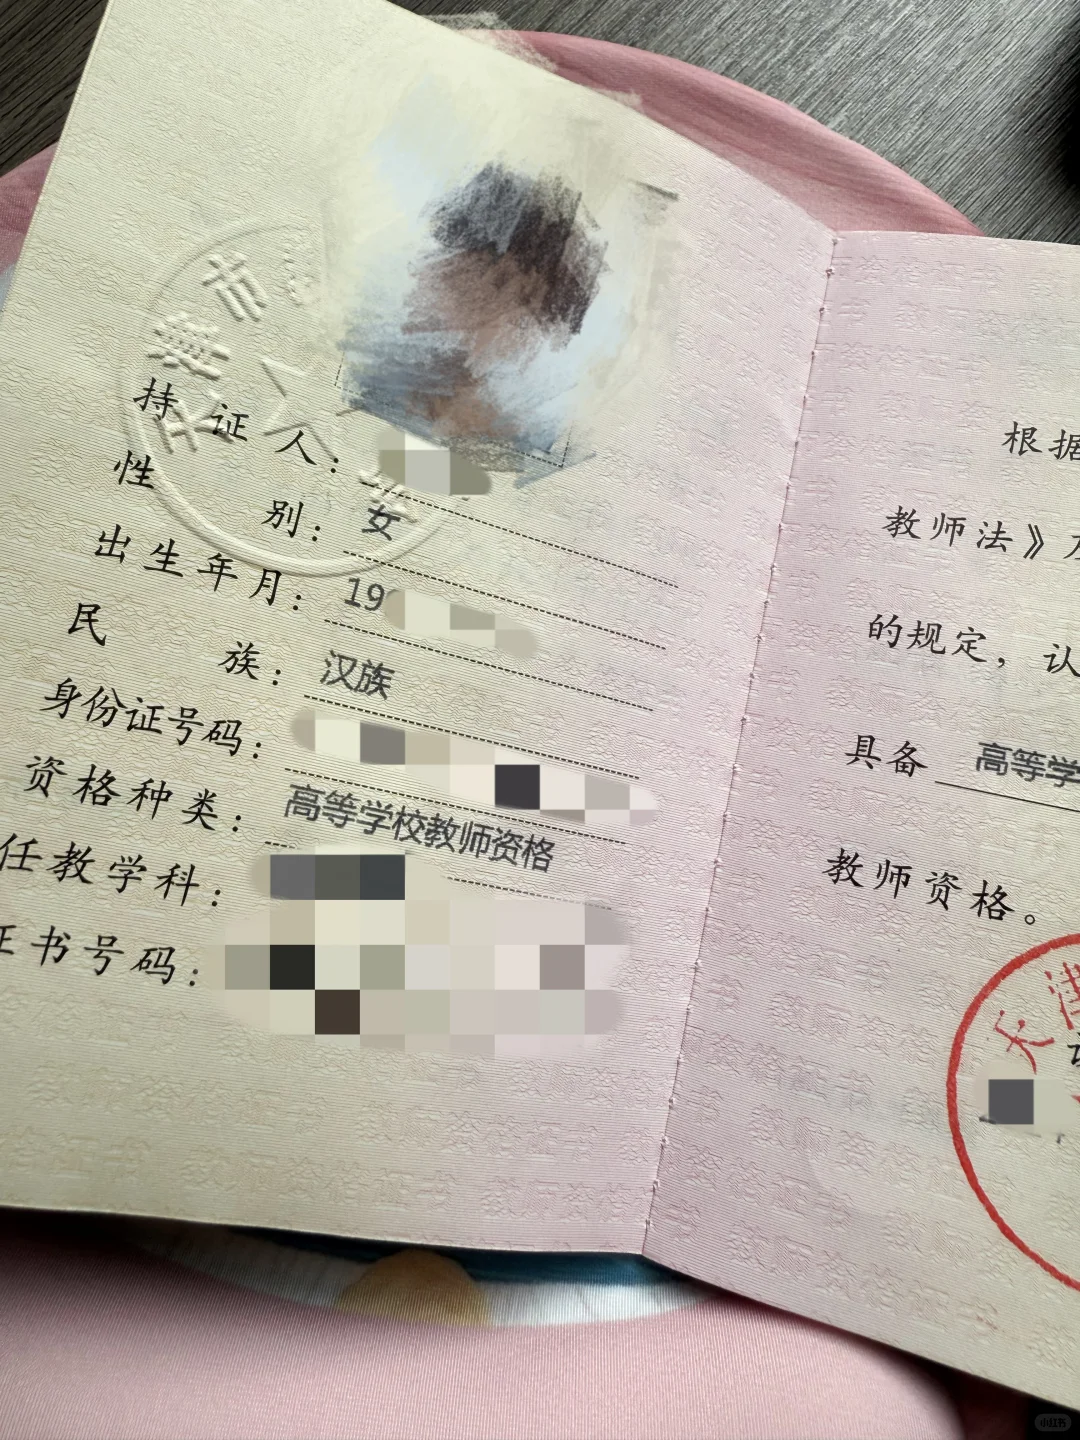 持证人：
性别：女
出生年月：19
民族：汉族
身份证号码：
资格种类：高等学校教师资格
任教学科：
证书号码：
根据
教师法》
的规定，认
具备 高等学
教师资格。
天津